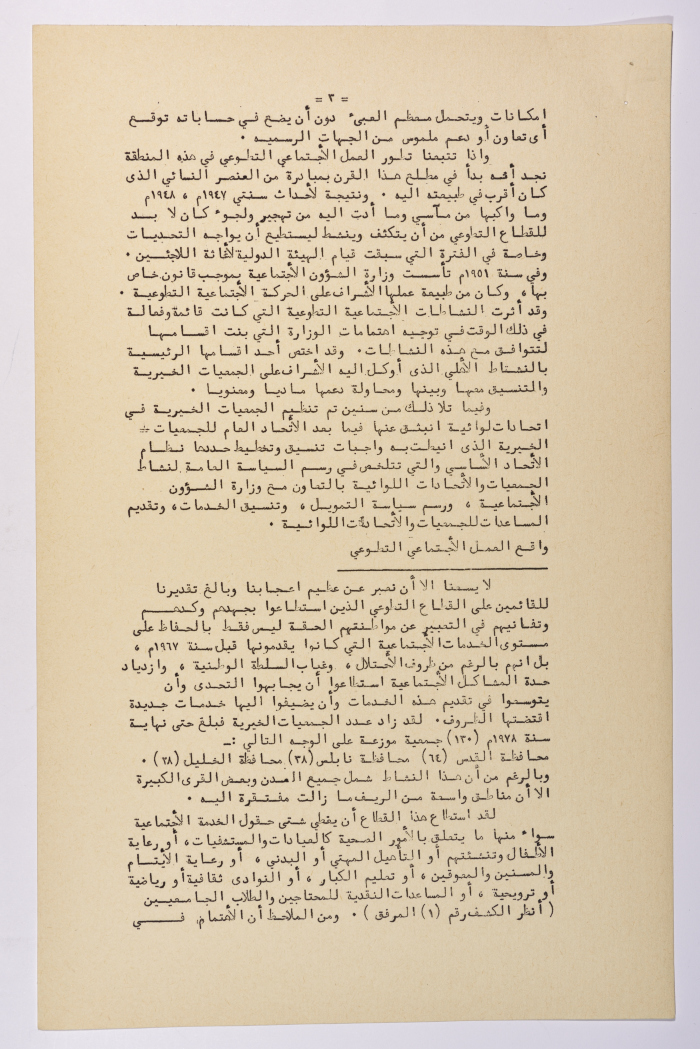 = ٣ =
امكانات ويتحمل معظم العبىء دون أن يضع في حساباته توقع
أى تعاون أو دعم ملموس من الجهات الرسميه .
واذا تتبعنا تطور العمل الأجتماعي التطوعي في هذه المنطقة
نجد أنه بدأ في مطلع هذا القرن بمبادرة من العنصر النسائي الذى
كان أقرب في طبيعته اليه . ونتيجة لأحداث سنتي ١٩٤٧م ، ١٩٤٨م
وما واكبها من مآسي وما أدت اليه من تهجير ولجوء كان لا بد
للقطاع التطوعي من أن يتكثف وينشط ليستطيع أن يواجه التحديات
وخاصة في الفترة التي سبقت قيام الهيئة الدولية لأغاثة اللاجئين .
وفي سنة ١٩٥١م تأسست وزارة الشؤون الأجتماعية بموجب قانون خاص
بها ، وكان من طبيعة عملها الأشراف على الحركة الأجتماعية التطوعية .
وقد أثرت النشاطات الأجتماعية التطوعية التي كانت قائمة وفعالة
في ذلك الوقت في توجيه اهتمامات الوزارة التي بنت اقسامها
لتتوافق مع هذه النشاطات . وقد اختص أحد اقسامها الرئيسية
بالنشاط الأهلي الذى أوكل اليه الأشراف على الجمعيات الخيرية
والتنسيق معها وبينها ومحاولة دعمها ماديا ومعنويا .
وفيما تلا ذلك من سنين تم تنظيم الجمعيات الخيرية في
اتحادات لوائية انبثق عنها فيما بعد الأتحاد العام للجمعيات =
الخيرية الذى انيطت به واجبات تنسيق وتخطيط حددها نظام
الأتحاد الأساسي والتي تتلخص في رسم السياسة العامة لنشاط
الجمعيات والأتحادات اللوائية بالتعاون مع وزارة الشؤون
الأجتماعية ، ورسم سياسة التمويل ، وتنسيق الخدمات ، وتقديم
المساعدات للجمعيات والأتحادات اللوائية .
واقع العمل الأجتماعي التطوعي
لا يسعنا الا أن نعبر عن عظيم اعجابنا وبالغ تقديرنا
للقائمين على القطاع التطوعي الذين استطاعوا بجهدهم وكدهم
وتفانيهم في التعبير عن مواطنتهم الحقة ليس فقط بالحفاظ على
مستوى الخدمات الأجتماعية التي كانوا يقدمونها قبل سنة ١٩٦٧م ،
بل انهم بالرغم من ظروف الأحتلال ، وغياب السلطة الوطنية ، وازدياد
حدة المشاكل الأجتماعية استطاعوا أن يجابهوا التحدى وأن
يتوسعوا في تقديم هذه الخدمات وأن يضيفوا اليها خدمات جديدة
اقتضتها الظروف . لقد زاد عدد الجمعيات الخيرية فبلغ حتى نهاية
سنة ١٩٧٨م (١٣٠) جمعية موزعة على الوجه التالي :ـ
محافظة القدس (٦٤) محافظة نابلس (٣٨) محافظة الخليل (٢٨) .
وبالرغم من أن هذا النشاط شمل جميع المدن وبعض القرى الكبيرة
الا أن مناطق واسعة من الريف ما زالت مفتقرة اليه .
لقد استطاع هذا القطاع أن يغطي شتى حقول الخدمة الأجتماعية
سواء منها ما يتعلق بالأمور الصحية كالعيادات والمستشفيات ، أو رعاية
الأطفال وتنشئتهم أو التأهيل المهني أو البدني ، أو رعاية الأيتام
والمسنين والمعوقين ، أو تعليم الكبار ، أو النوادى ثقافية أو رياضية
أو ترويحية ، أو المساعدات النقدية للمحتاجين والطلاب الجامعيين
( أنظر الكشف رقم (١) المرفق ) . ومن الملاحظ أن الأهتمام في